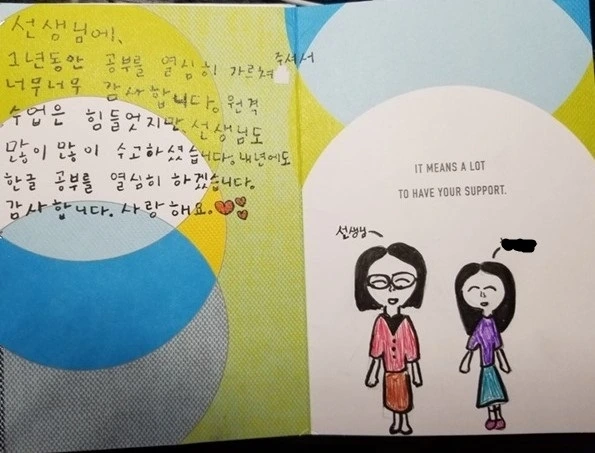 선생님에,
1년동안 공부를 열심히 가르쳐 주셔서
너무너무 감사합니다. 원격
수업은 힘들었지만, 선생님도
많이 많이 수고하셨습니다. 내년에도
한글 공부를 열심히 하겠습니다.
감사합니다. 사랑해요.
IT MEANS A LOT
TO HAVE YOUR SUPPORT.
선생님